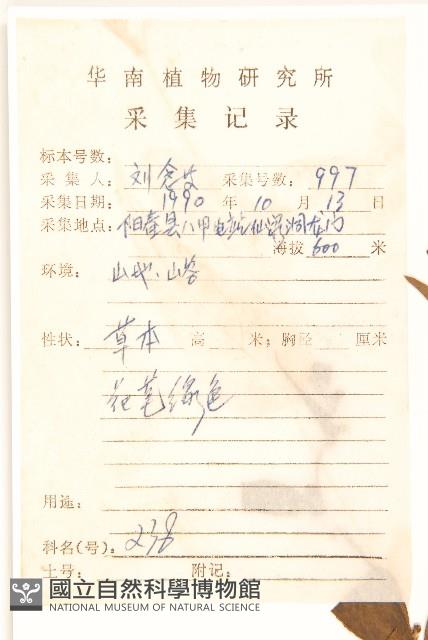 华南植物研究所
采集记录
标本号数：
采集人：刘念 采集号数：997
采集日期：1990年10月13日
采集地点：阳春县八甲电站仙家洞
海拔600米
环境：山地、山谷
性状：草本 高 米；胸径 厘米
花萼绿色
用途：
科名(号)：238
土号： 附记：
國立自然科學博物館
NATIONAL MUSEUM OF NATURAL SCIENCE